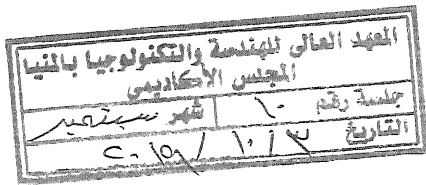 المعهد العالى للهندسة والتكنولوجيا بالمنيا
المجلس الأكاديمى
جلسة رقم ١٠ شهر سبتمبر
التاريخ ٣ / ١٠ /